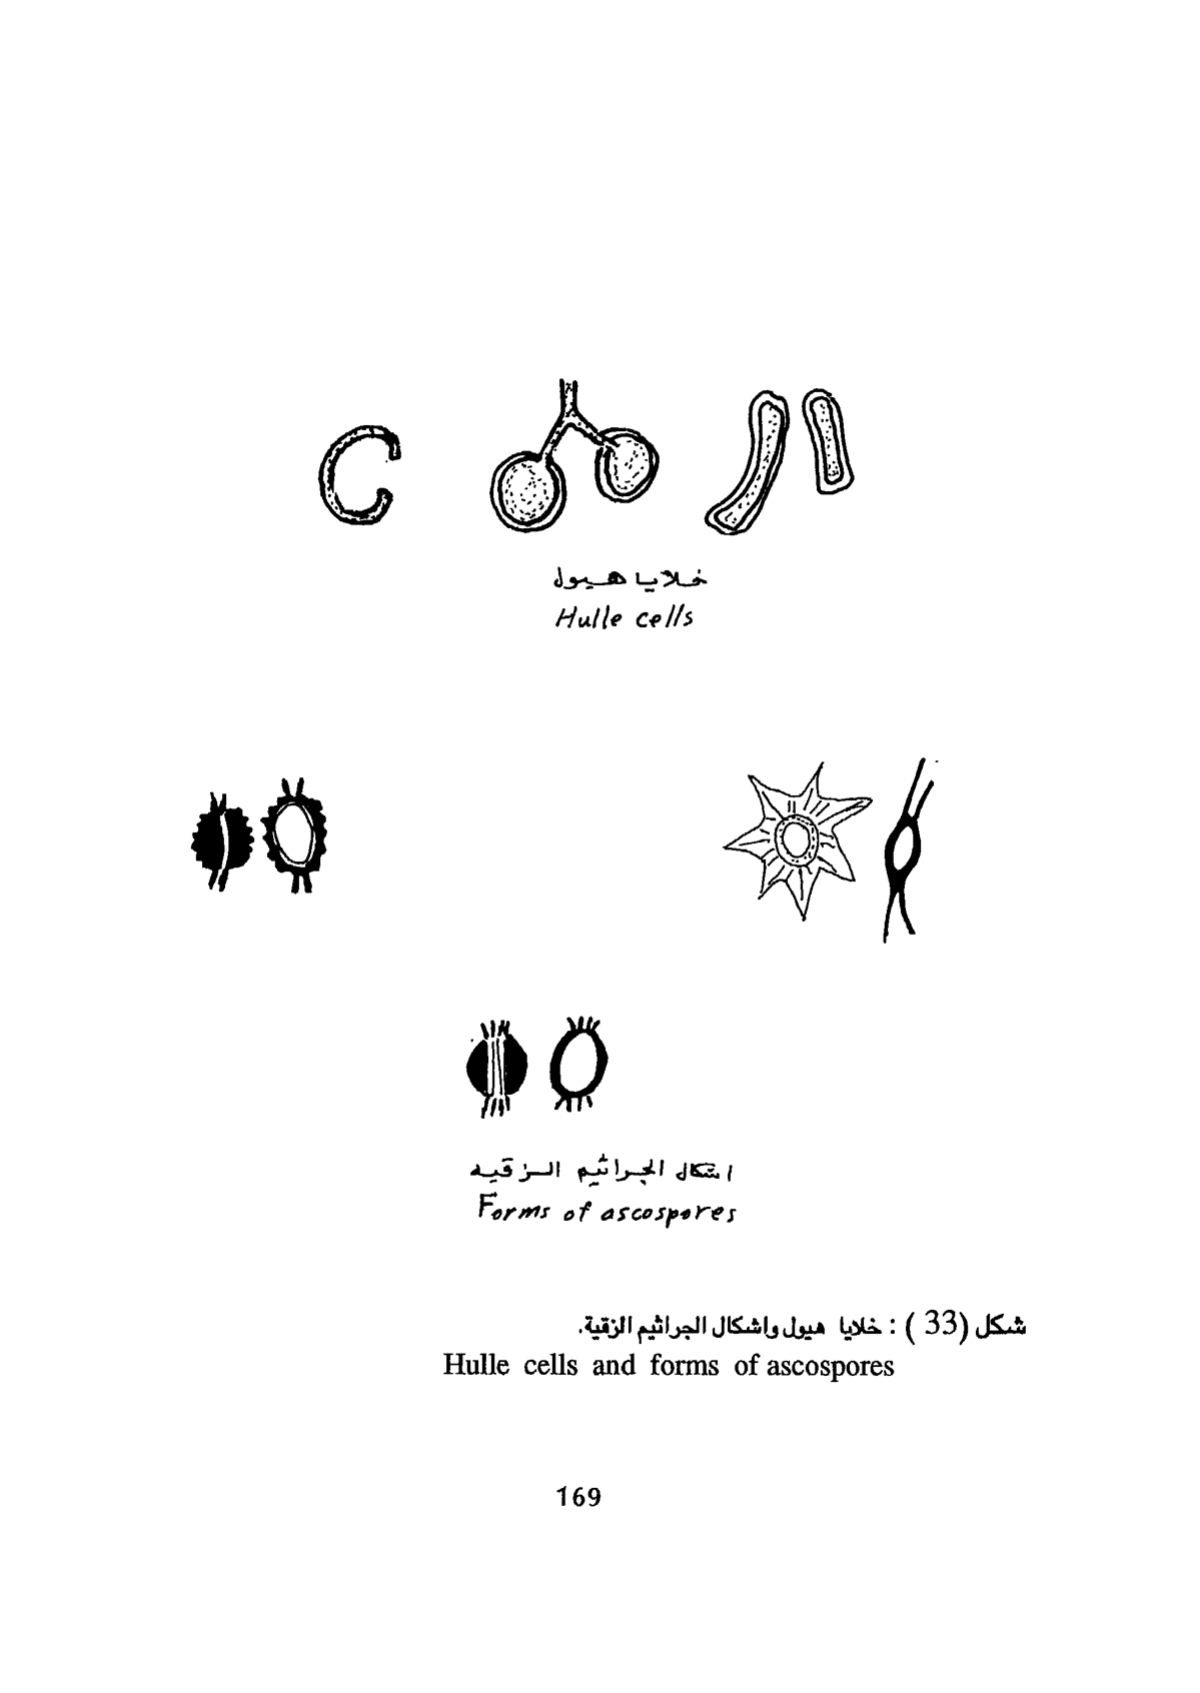 خلايا هيول
Hulle cells
اشكال الجراثيم الزقيه
Forms of ascospores
شكل (33 ) : خلايا هيول واشكال الجراثيم الزقية.
Hulle cells and forms of ascospores
169